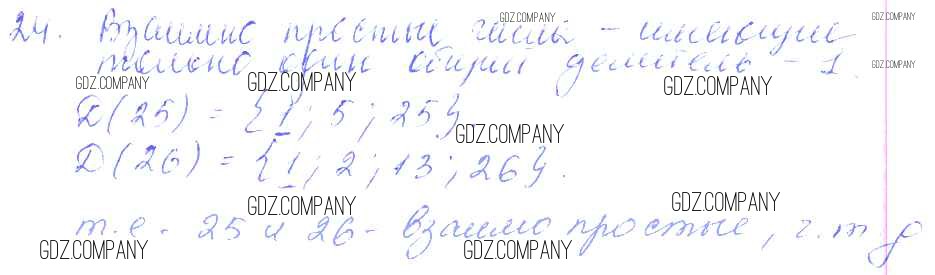 GDZ.COMPANY GDZ.COMPANY
24. Взаимно простые числа - имеющие
только один общий делитель - 1.
GDZ.COMPANY GDZ.COMPANY GDZ.COMPANY GDZ.COMPANY
Д(25) = {1; 5; 25}
GDZ.COMPANY
Д(26) = {1; 2; 13; 26}.
GDZ.COMPANY GDZ.COMPANY
т.е. 25 и 26 - взаимно простые, ч.т.д
GDZ.COMPANY GDZ.COMPANY